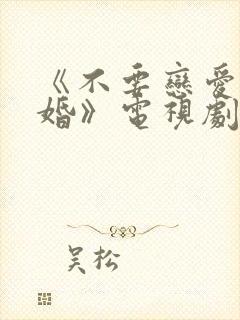 《不要戀愛
婚》電視劇
吴松